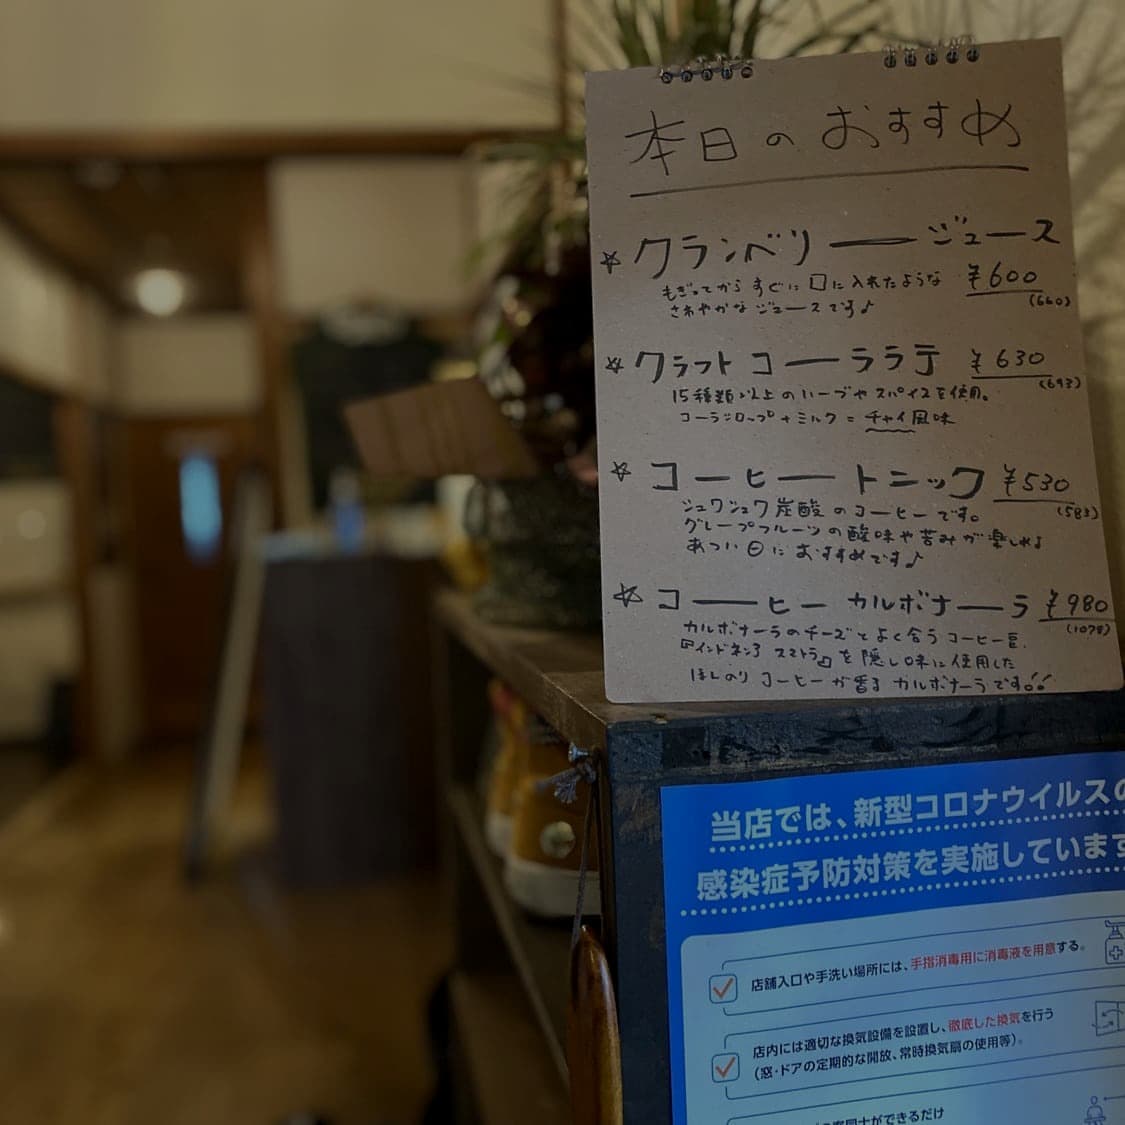 本日のおすすめ
☆ クランベリージュース
¥600
もぎってからすぐに口に入れたような
(660)
さわやかなジュースです♪
☆ クラフトコーララテ ¥630
(693)
15種類以上のハーブやスパイスを使用。
コーラシロップ+ミルク=チャイ風味
☆ コーヒートニック ¥530
(583)
シュワシュワ炭酸のコーヒーです。
グレープフルーツの酸味や苦みが楽しめ
あつい日におすすめです♪
☆ コーヒーカルボナーラ ¥980
(1078)
カルボナーラのチーズとよく合うコーヒー豆、
『インドネシア スマトラ』を隠し味に使用した
ほんのりコーヒーが香るカルボナーラです!!
当店では、新型コロナウイルスの
感染症予防対策を実施しています
店舗入口や手洗い場所には、手指消毒用に消毒液を用意する。
店内には適切な換気設備を設置し、徹底した換気を行う
(窓・ドアの定期的な開放、常時換気扇の使用等)。
客同士ができるだけ